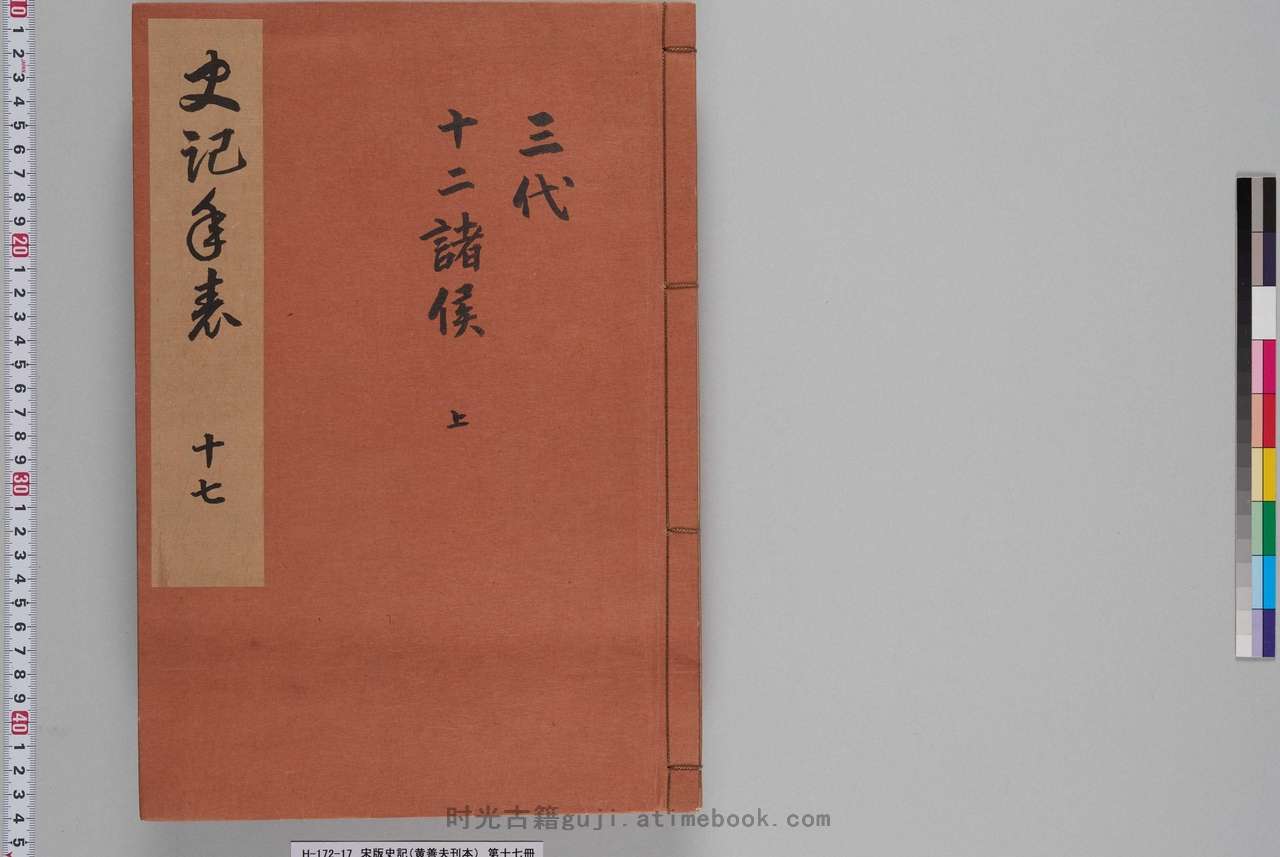 三代
十二諸侯 上
史記年表 十七
时光古籍guji.atimebook.com
H-172-17 宋版史記(黄善夫刊本) 第十七冊